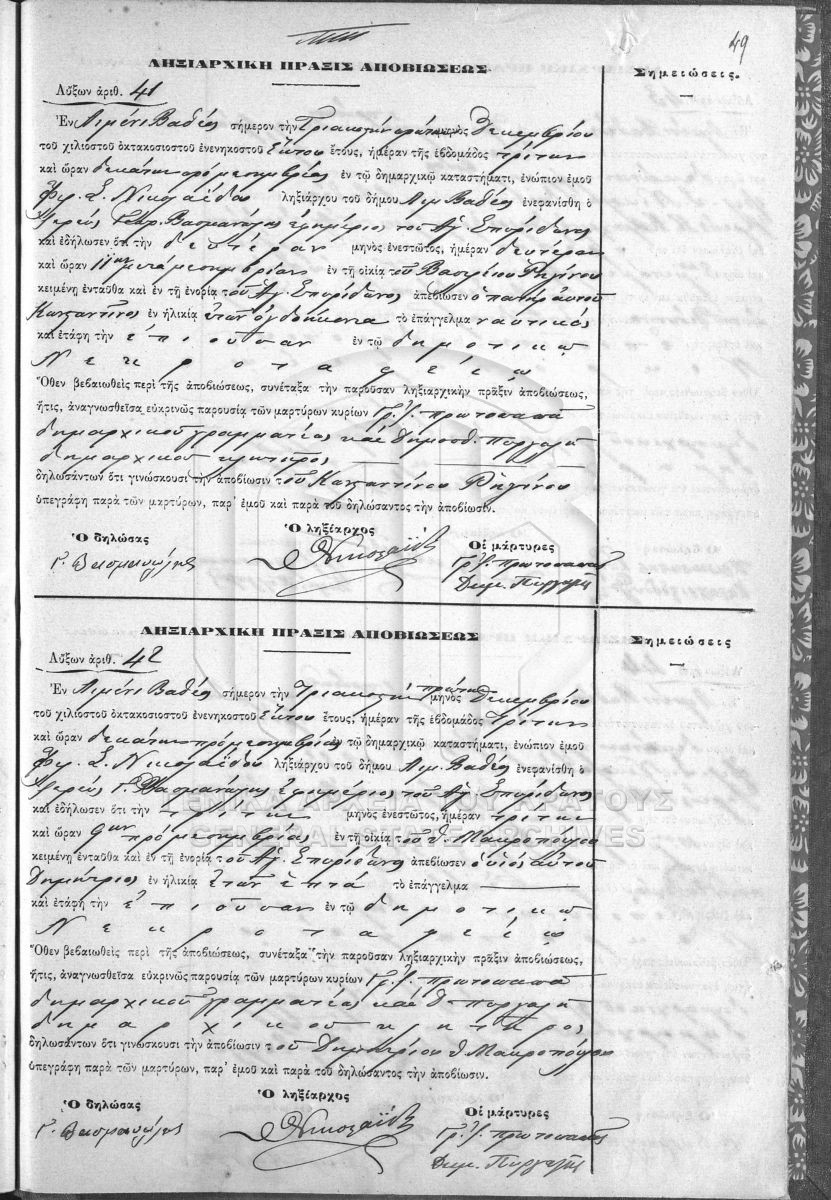 49
ΛΗΞΙΑΡΧΙΚΗ ΠΡΑΞΙΣ ΑΠΟΒΙΩΣΕΩΣ
Σημειώσεις.
Αὔξων ἀριθ. 41
Ἐν Λιμένι Βαθέος σήμερον τὴν Τριακοστὴν πρώτην μηνὸς Δεκεμβρίου
τοῦ χιλιοστοῦ ὀκτακοσιοστοῦ ἐνενηκοστοῦ Ἕκτου ἔτους, ἡμέραν τῆς ἑβδομάδος τρίτην
καὶ ὥραν δεκάτην πρὸ μεσημβρίας ἐν τῷ δημαρχικῷ καταστήματι, ἐνώπιον ἐμοῦ
Σ. Νικολαΐδου ληξιάρχου τοῦ δήμου Λιμ. Βαθέος ἐνεφανίσθη ὁ
Ἱερεύς Βασμανώλης ἐφημέριος τοῦ Ἁγ. Σπυρίδωνος
καὶ ἐδήλωσεν ὅτι τὴν δευτέραν μηνὸς ἐνεστῶτος, ἡμέραν δευτέραν
καὶ ὥραν 11ην μετὰ μεσημβρίαν ἐν τῇ οἰκίᾳ τοῦ Ῥηγίνου
κειμένῃ ἐνταῦθα καὶ ἐν τῇ ἐνορίᾳ τοῦ Ἁγ. Σπυρίδωνος ἀπεβίωσεν ὁ πατὴρ αὐτοῦ
Κωνσταντῖνος ἐν ἡλικίᾳ ἐτῶν ὀγδοήκοντα τὸ ἐπάγγελμα ναυτικὸς
καὶ ἐτάφη τὴν ἐπιοῦσαν ἐν τῷ δημοτικῷ
Νεκροταφείῳ
Ὅθεν βεβαιωθεὶς περὶ τῆς ἀποβιώσεως, συνέταξα τὴν παροῦσαν ληξιαρχικὴν πρᾶξιν ἀποβιώσεως,
ἥτις, ἀναγνωσθεῖσα εὐκρινῶς παρουσίᾳ τῶν μαρτύρων κυρίων Γρ. Πρωτοπαπᾶ
δημαρχικοῦ γραμματέως καὶ Δημοσθ. Πυργαλῆ
δημαρχικοῦ κλητῆρος
δηλωσάντων ὅτι γινώσκουσι τὴν ἀποβίωσιν τοῦ Κωνσταντίνου Ῥηγίνου
ὑπεγράφη παρὰ τῶν μαρτύρων, παρ' ἐμοῦ καὶ παρὰ τοῦ δηλώσαντος τὴν ἀποβίωσιν.
Ὁ δηλώσας
Ὁ ληξίαρχος
Οἱ μάρτυρες
Γ. Βασμανώλης
Νικολαΐδης
Γρ. Πρωτοπαπᾶς
Δημ. Πυργαλῆς
ΛΗΞΙΑΡΧΙΚΗ ΠΡΑΞΙΣ ΑΠΟΒΙΩΣΕΩΣ
Σημειώσεις
Αὔξων ἀριθ. 42
Ἐν Λιμένι Βαθέος σήμερον τὴν Τριακοστὴν πρώτην μηνὸς Δεκεμβρίου
τοῦ χιλιοστοῦ ὀκτακοσιοστοῦ ἐνενηκοστοῦ Ἕκτου ἔτους, ἡμέραν τῆς ἑβδομάδος Τρίτην
καὶ ὥραν δεκάτην πρὸ μεσημβρίας ἐν τῷ δημαρχικῷ καταστήματι, ἐνώπιον ἐμοῦ
Σ. Νικολαΐδου ληξιάρχου τοῦ δήμου Λιμ. Βαθέος ἐνεφανίσθη ὁ
Ἱερεύς Γ. Βασμανώλης Ἐφημέριος τοῦ Ἁγ. Σπυρίδωνος
καὶ ἐδήλωσεν ὅτι τὴν τρίτην μηνὸς ἐνεστῶτος, ἡμέραν τρίτην
ΓΕΝΙΚΑ ΑΡΧΕΙΑ ΤΟΥ ΚΡΑΤΟΥΣ
GENERAL STATE ARCHIVES
καὶ ὥραν 9ην πρὸ μεσημβρίας ἐν τῇ οἰκίᾳ τοῦ Θ. Μαυροπούλου
κειμένῃ ἐνταῦθα καὶ ἐν τῇ ἐνορίᾳ τοῦ Ἁγ. Σπυρίδωνος ἀπεβίωσεν ὁ υἱὸς αὐτοῦ
Δημήτριος ἐν ἡλικίᾳ ἐτῶν ἑπτὰ τὸ ἐπάγγελμα
καὶ ἐτάφη τὴν ἐπιοῦσαν ἐν τῷ δημοτικῷ
Νεκροταφείῳ
Ὅθεν βεβαιωθεὶς περὶ τῆς ἀποβιώσεως, συνέταξα τὴν παροῦσαν ληξιαρχικὴν πρᾶξιν ἀποβιώσεως,
ἥτις, ἀναγνωσθεῖσα εὐκρινῶς παρουσίᾳ τῶν μαρτύρων κυρίων Γρ. Πρωτοπαπᾶ
δημαρχικοῦ γραμματέως καὶ Πυργαλῆ
δημαρχικοῦ κλητῆρος
δηλωσάντων ὅτι γινώσκουσι τὴν ἀποβίωσιν τοῦ Δημητρίου Θ. Μαυροπούλου
ὑπεγράφη παρὰ τῶν μαρτύρων, παρ' ἐμοῦ καὶ παρὰ τοῦ δηλώσαντος τὴν ἀποβίωσιν.
Ὁ δηλώσας
Ὁ ληξίαρχος
Οἱ μάρτυρες
Γ. Βασμανώλης
Νικολαΐδης
Γρ. Πρωτοπαπᾶς
Δημ. Πυργαλῆς